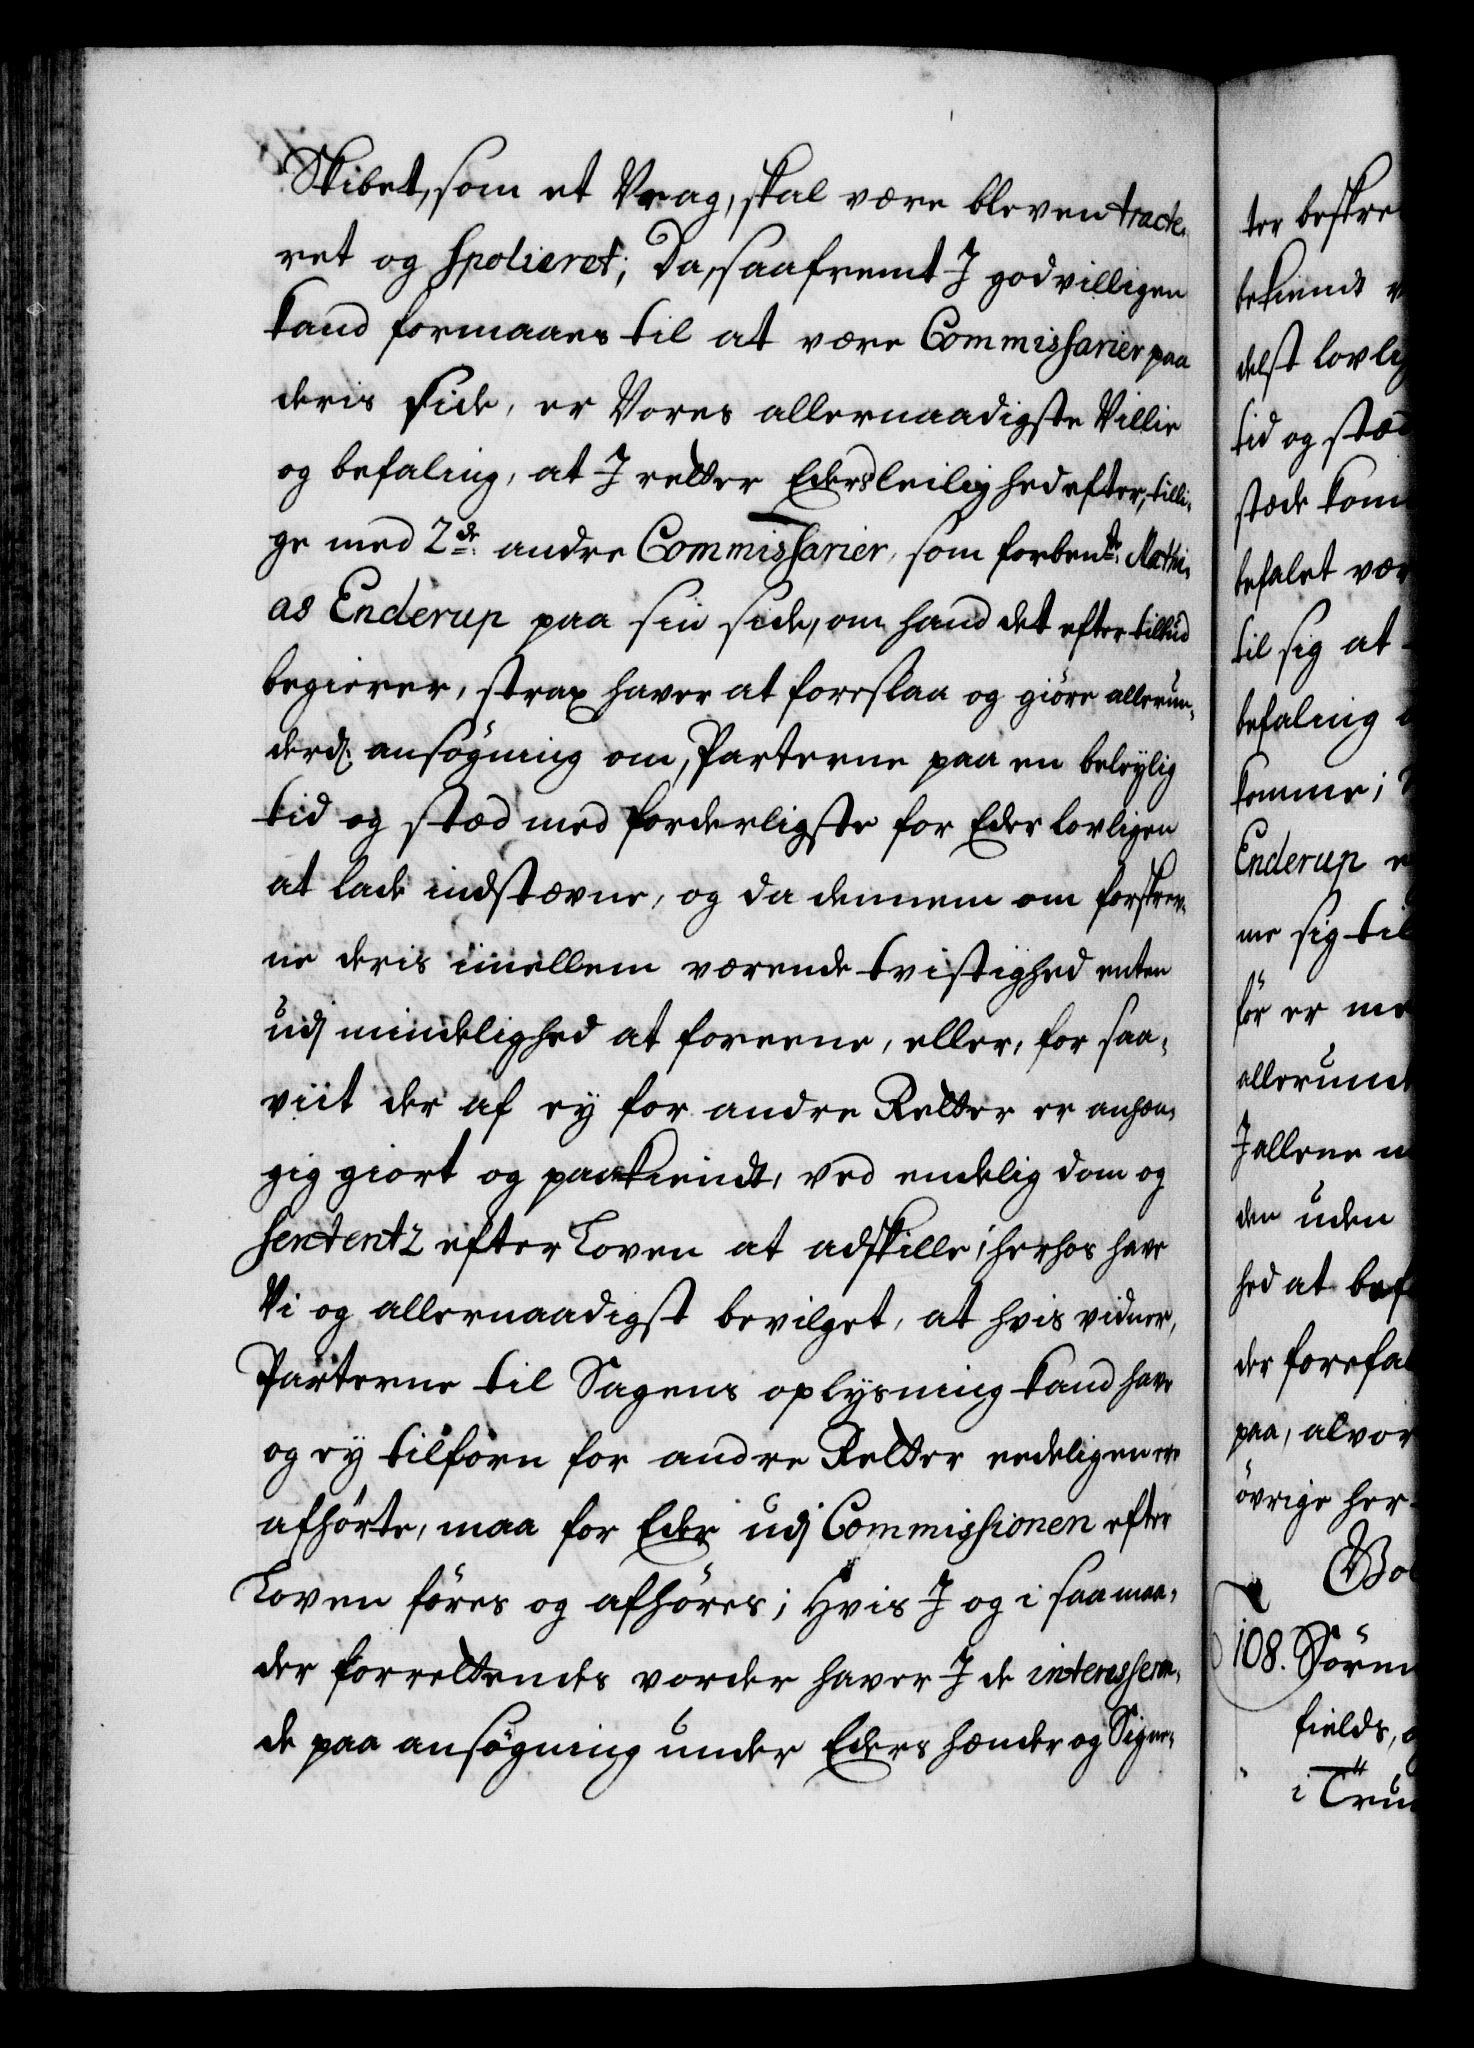 Skibet, som et Vrag, skal være bleven tracte-
ret og spolieret; Da, saafremt I godvilligen
kand formaaes til at være Commissarier paa
deris side, er Vores allernaadigste Villie
og befaling, at I retter Eders leilighed efter, tilli-
ge med 2de andre Commissarier, som forbente Mathi-
as Enderup paa sin side, om hand det efter tilbud
begierer, strax haver at foreslaa og giöre allerun-
derd: ansøgning om, Parterne paa en beleylig
tid og stæd med forderligste for Eder lovligen
at lade indstævne, og da dennem om forskrev-
ne deris imellem værende tvistighed enten
udj mindelighed at foreene, eller, for saa-
viit der af ey for andre Retter er anhæn-
gig giort og paakiendt, ved endelig dom og
sententz efter Loven at adskille; herhos have
Vi og allernaadigst bevilget, at hvis vidner,
Parterne til Sagens oplysning kand have
og ey tilforn for andre Retter eedeligen ere
afhørte, maa for Eder udj Commissionen efter
Loven föres og afhöres; Hvis I og i saa maa-
der forrettendes vorder haver I de interesseren-
de paa ansøgning under Eders hænder og Signe-
ter beskre
bekiendt
delst lovlig
tid og stæd
stæde kom
befalet vær
til sig at
befaling
komme;
Enderup
me sig til
för er me
allerund
I allene
den uden
hed at bef
der forefal
paa, alvor
övrige her
108. Sören
fields,
i Trun